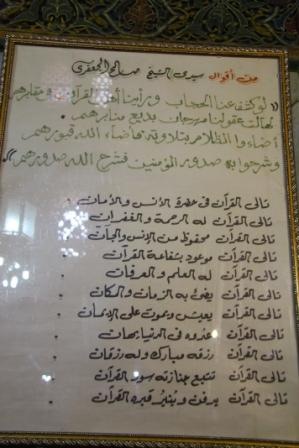 من أقوال سيدى الشيخ صالح الجعفرى
(( لو كشف عنا الحجاب ورأينا أهل القرآن في مقابرهم
لهالت عقولنا من رجات بديع منابرهم.
أضاءوا الظلام بتلاوته فأضاء الله قبورهم
وشرحوا به صدور المؤمنين فشرح الله صدورهم ))
تالى القرآن فى حضرة الأنس والأمان
تالى القرآن له الرحمة والغفران
تالى القرآن محفوظ من الإنس والجان
تالى القرآن موعود بشفاعة القرآن
تالى القرآن له العلم والعرفان
تالى القرآن يضئ به الزمان والمكان
تالى القرآن يعيش ويموت على الإيمان
تالى القرآن عدوه فى الدنيا يهان
تالى القرآن رزقه مبارك وله رزقان
تالى القرآن تتبع جنازته سور القرآن
تالى القرآن يدفن وينير قبره القرآن